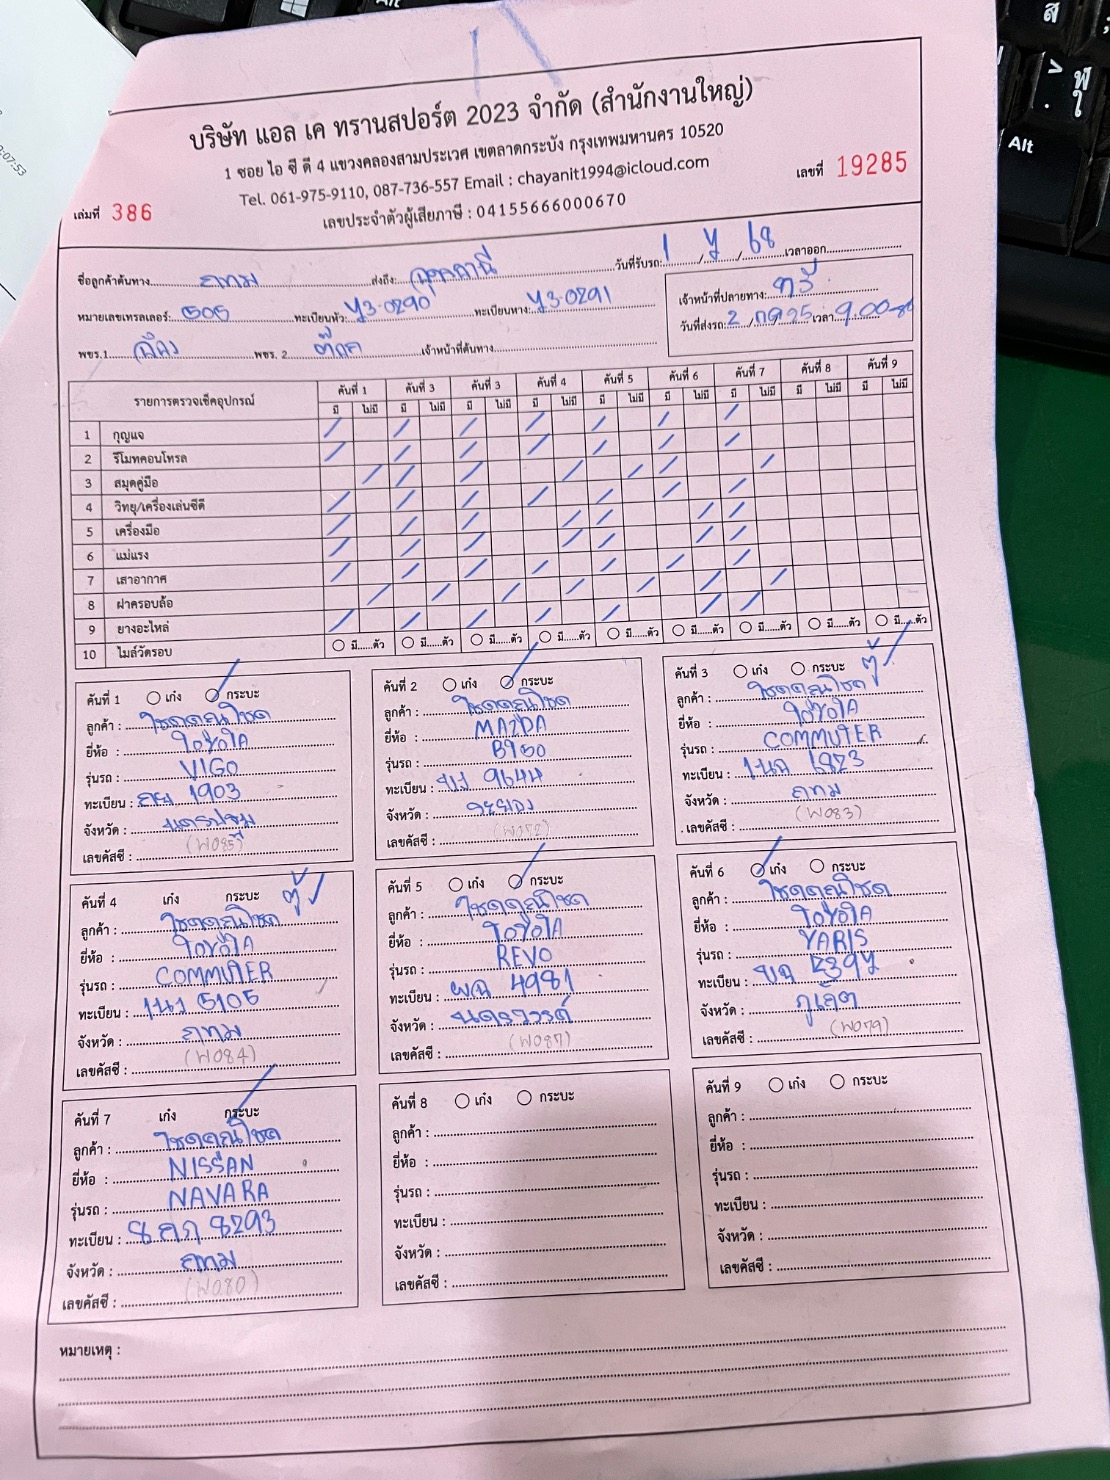 บริษัท แอล เค ทรานสปอร์ต 2023 จำกัด (สำนักงานใหญ่)
1 ซอย ไอ ซี ดี 4 แขวงคลองสามประเวศ เขตลาดกระบัง กรุงเทพมหานคร 10520
Tel. 061-975-9110, 087-736-557 Email : chayanit1994@icloud.com
เลขประจำตัวผู้เสียภาษี : 04155666000670
เล่มที่ 386
เลขที่ 19285
ชื่อลูกค้าต้นทาง กทม ส่งถึง: อุดรธานี วันที่รับรถ: 1 / 7 / 68 เวลาออก
หมายเลขเทรลเลอร์: 505 ทะเบียนหัว: 73-0290 ทะเบียนหาง: 73-0291
เจ้าหน้าที่ปลายทาง:
วันที่ส่งรถ: 2 / กค 25 เวลา 9.00
พขร.1 พขร. 2 เจ้าหน้าที่ต้นทาง
รายการตรวจเช็คอุปกรณ์ คันที่ 1 คันที่ 3 คันที่ 3 คันที่ 4 คันที่ 5 คันที่ 6 คันที่ 7 คันที่ 8 คันที่ 9
มี ไม่มี มี ไม่มี มี ไม่มี มี ไม่มี มี ไม่มี มี ไม่มี มี ไม่มี มี ไม่มี มี ไม่มี
1 กุญแจ
2 รีโมทคอนโทรล
3 สมุดคู่มือ
4 วิทยุ/เครื่องเล่นซีดี
5 เครื่องมือ
6 แม่แรง
7 เสาอากาศ
8 ฝาครอบล้อ
9 ยางอะไหล่
10 ไมล์วัดรอบ มี......ตัว มี......ตัว มี......ตัว มี......ตัว มี......ตัว มี......ตัว มี......ตัว มี......ตัว มี......ตัว
คันที่ 1 เก๋ง กระบะ
ลูกค้า :
ยี่ห้อ : TOYOTA
รุ่นรถ : VIGO
ทะเบียน : 1903
จังหวัด : นครปฐม
(W085)
เลขคัสซี :
คันที่ 2 เก๋ง กระบะ
ลูกค้า :
ยี่ห้อ : MAZDA
รุ่นรถ :
ทะเบียน : 9644
จังหวัด : ระยอง
เลขคัสซี :
คันที่ 3 เก๋ง กระบะ ตู้
ลูกค้า :
ยี่ห้อ : TOYOTA
รุ่นรถ : COMMUTER
ทะเบียน : 1นฉ
จังหวัด : กทม
(W083)
เลขคัสซี :
คันที่ 4 เก๋ง กระบะ ตู้
ลูกค้า :
ยี่ห้อ : TOYOTA
รุ่นรถ : COMMUTER
ทะเบียน : 1นง 5105
จังหวัด : กทม
(W084)
เลขคัสซี :
คันที่ 5 เก๋ง กระบะ
ลูกค้า :
ยี่ห้อ : TOYOTA
รุ่นรถ : REVO
ทะเบียน : ผฉ 4981
จังหวัด : นครสวรรค์
(W087)
เลขคัสซี :
คันที่ 6 เก๋ง กระบะ
ลูกค้า :
ยี่ห้อ : TOYOTA
รุ่นรถ : YARIS
ทะเบียน : 2397
จังหวัด : ภูเก็ต
(W079)
เลขคัสซี :
คันที่ 7 เก๋ง กระบะ
ลูกค้า :
ยี่ห้อ : NISSAN
รุ่นรถ : NAVARA
ทะเบียน : 8293
จังหวัด : กทม
(W080)
เลขคัสซี :
คันที่ 8 เก๋ง กระบะ
ลูกค้า :
ยี่ห้อ :
รุ่นรถ :
ทะเบียน :
จังหวัด :
เลขคัสซี :
คันที่ 9 เก๋ง กระบะ
ลูกค้า :
ยี่ห้อ :
รุ่นรถ :
ทะเบียน :
จังหวัด :
เลขคัสซี :
หมายเหตุ :
Alt